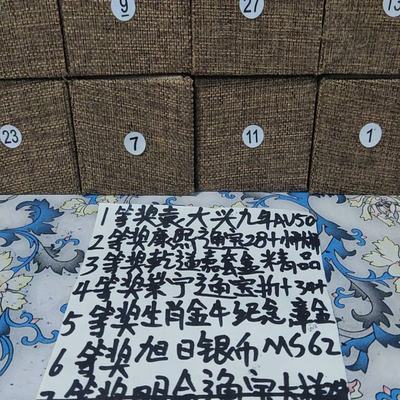 9 27 13
23 7 11 1
1等奖袁大头九年AU50
2等奖康熙通宝28+
3等奖乾通嘉套盒精品
4等奖崇宁通宝折十34+
5等奖生肖金牛纪念章金
6等奖旭日银币MS62
7等奖明会通宝大样